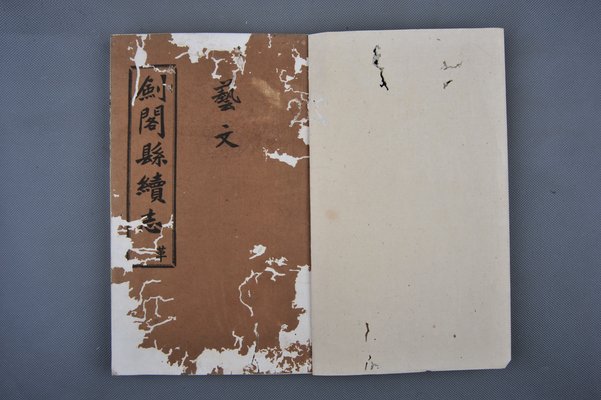 藝文
劍閣縣續志